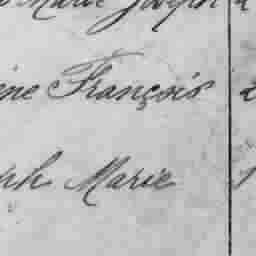 Marie Joseph
ine François 2
ph Marie